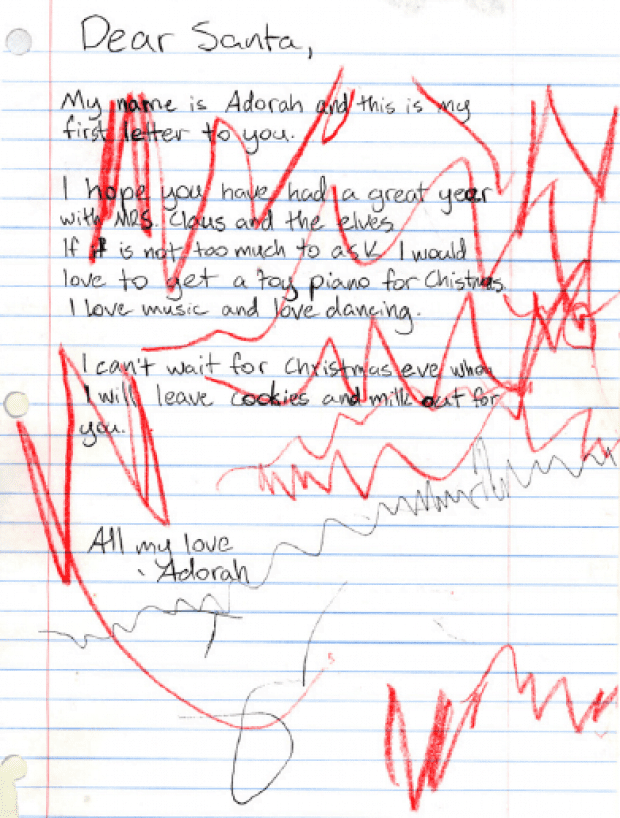 Dear Santa,
My name is Adorah and this is my
first letter to you.
I hope you have had a great year
with MRS. Claus and the elves
If it is not too much to ask I would
love to get a toy piano for Chistmas
I love music and love dancing.
I can't wait for Christmas eve when
I will leave cookies and milk out for
you.
All my love
Adorah